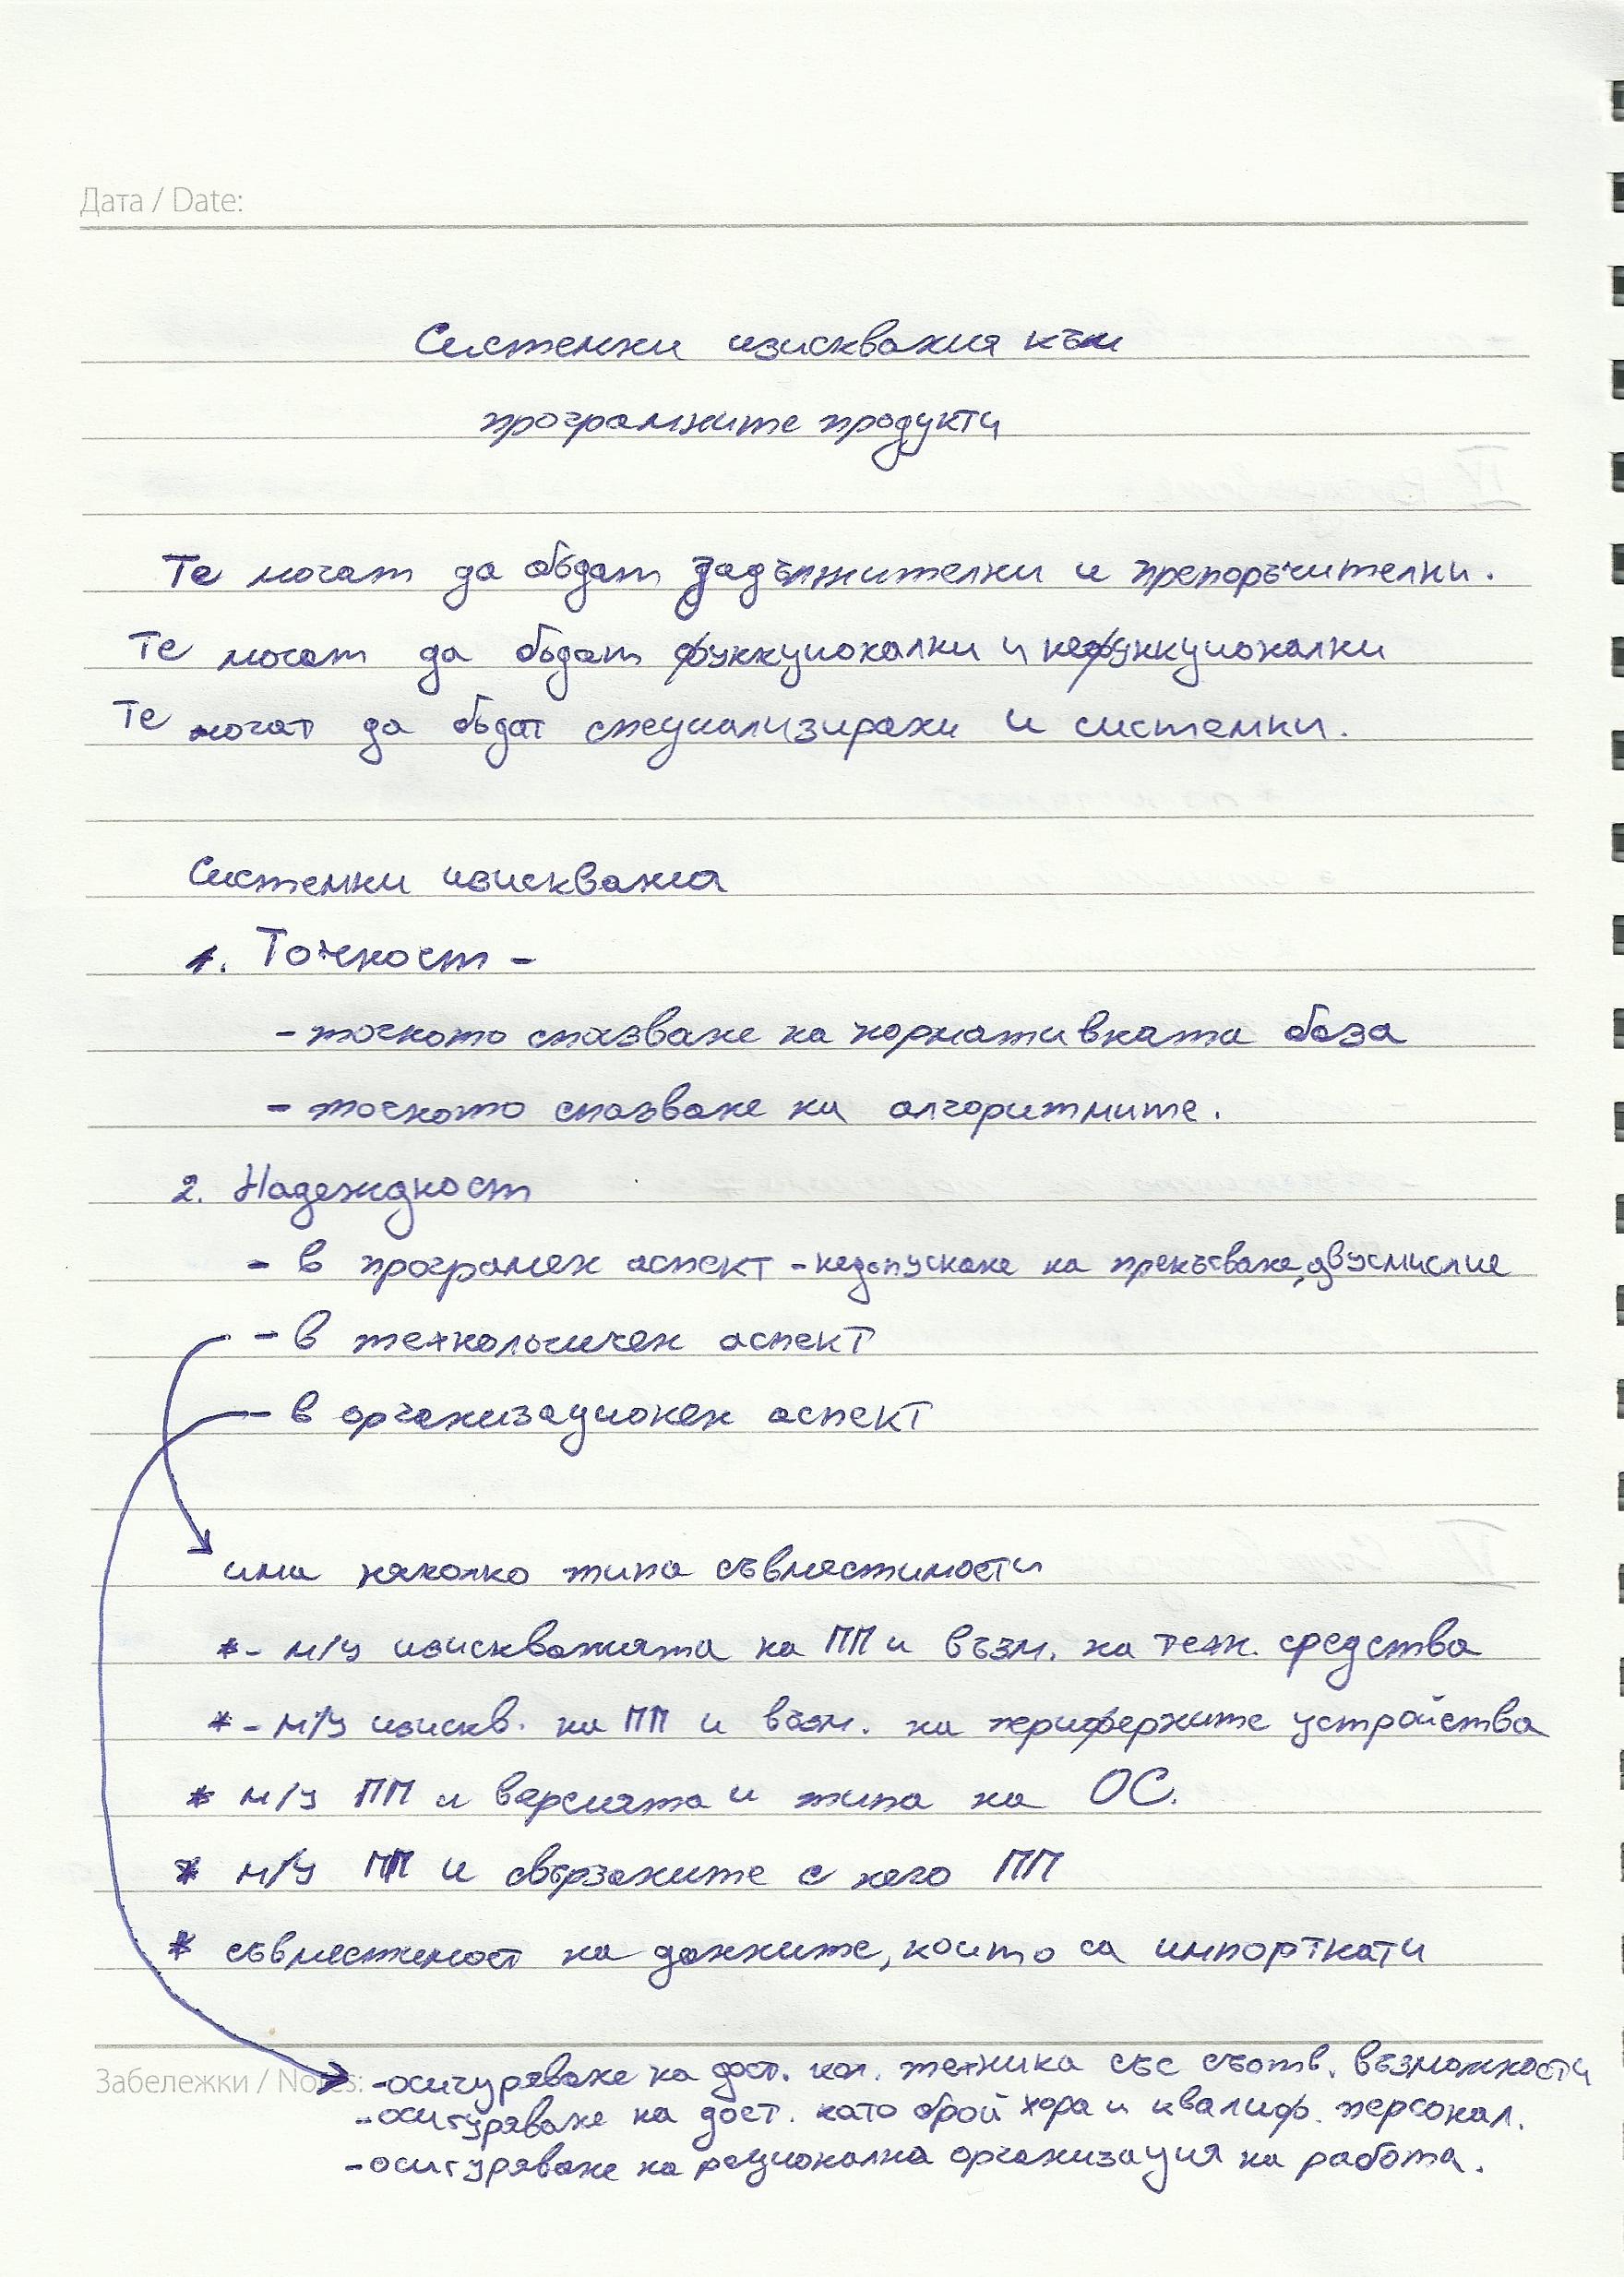 Дата / Date:
Системни изисквания към
програмните продукти
Те могат да бъдат задължителни и препоръчителни.
Те могат да бъдат функционални и нефункционални
Те могат да бъдат специализирани и системни.
Системни изисквания
1. Точност -
- точното спазване на нормативната база
- точното спазване на алгоритмите.
2. Надеждност
- в програмен аспект - недопускане на прекъсване, двусмислие
- в технологичен аспект
- в организационен аспект
има няколко типа съвместимости
*- м/у изискванията на ПП и възм. на техн. средства
*- м/у изискв. на ПП и възм. на периферните устройства
* м/у ПП и версията и типа на ОС.
* м/у ПП и свързаните с него ПП
* съвместимост на данните, които са импорткати
Забележки / Notes:
- осигуряване на дост. кол. техника със съотв. възможности
- осигуряване на дост. като брой хора и квалиф. персонал.
- осигуряване на рационална организация на работа.